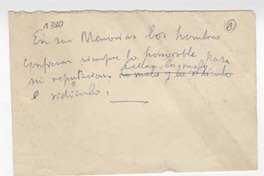 1380
1
En sus Memorias los hombres
confiesan siempre lo honorable para
su reputación
lo malo y lo ridículo
e ridículo.